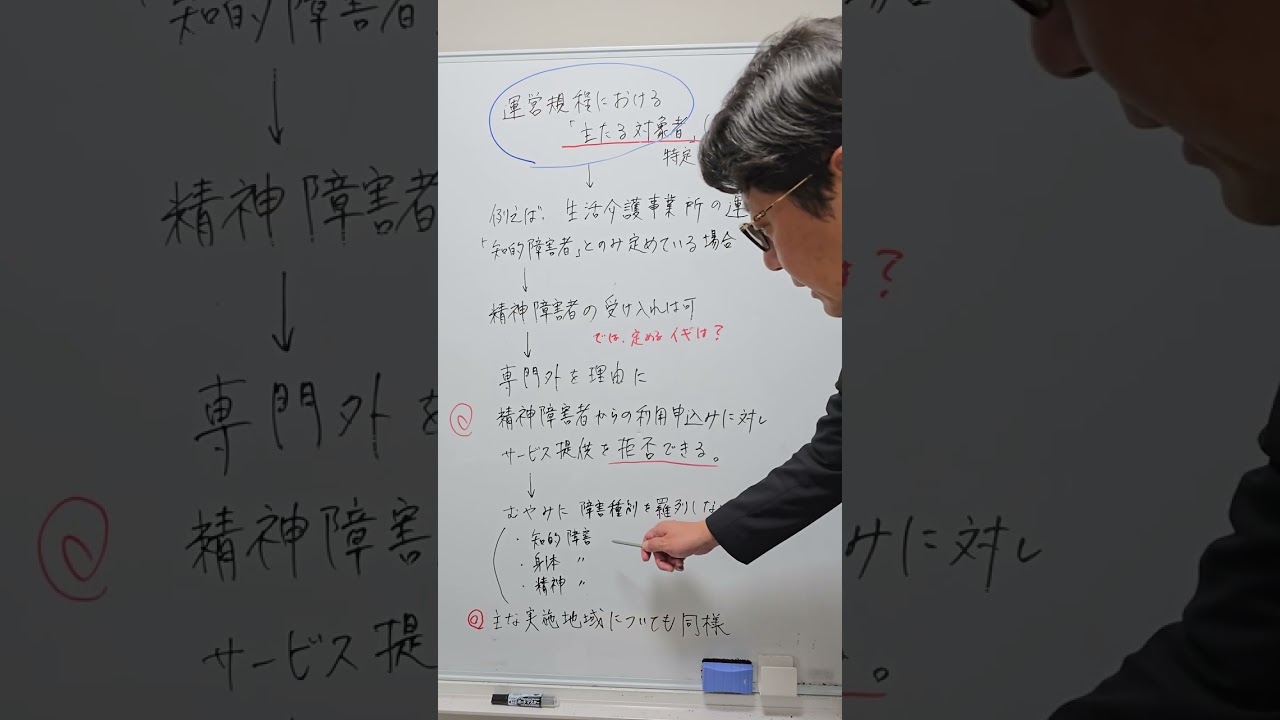 運営規程における
「主たる対象者」(
特定
↓
例えば、生活介護事業所の運
「知的障害者」とのみ定めている場合
↓
精神障害者の受け入れは可
では、定めるイギは?
↓
専門外を理由に
精神障害者からの利用申込みに対し
サービス提供を拒否できる。
↓
むやみに障害種別を羅列しな
・知的障害
・身体 〃
・精神 〃
主な実施地域についても同様